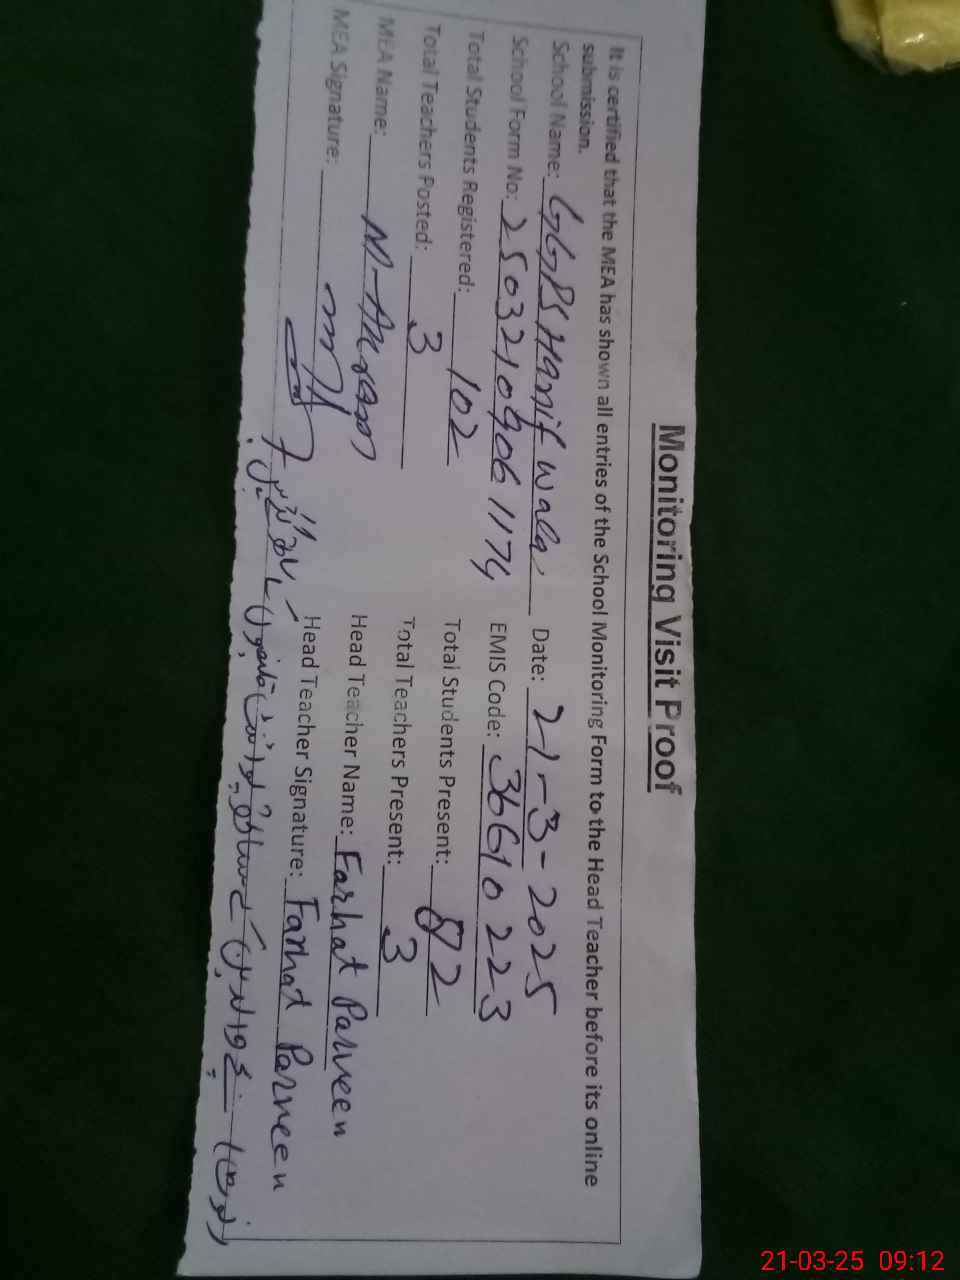 Monitoring Visit Proof
It is certified that the MEA has shown all entries of the School Monitoring Form to the Head Teacher before its online
submission.
School Name: GGPS Hanif wala Date: 21-3-2025
School Form No: 2503210906 1174 EMIS Code: 36610223
Total Students Registered: 102 Total Students Present: 82
Total Teachers Posted: 3 Total Teachers Present: 3
MEA Name: M-Akram Head Teacher Name: Farhat Parveen
MEA Signature: Head Teacher Signature: Farhat Parveen
21-03-25 09:12